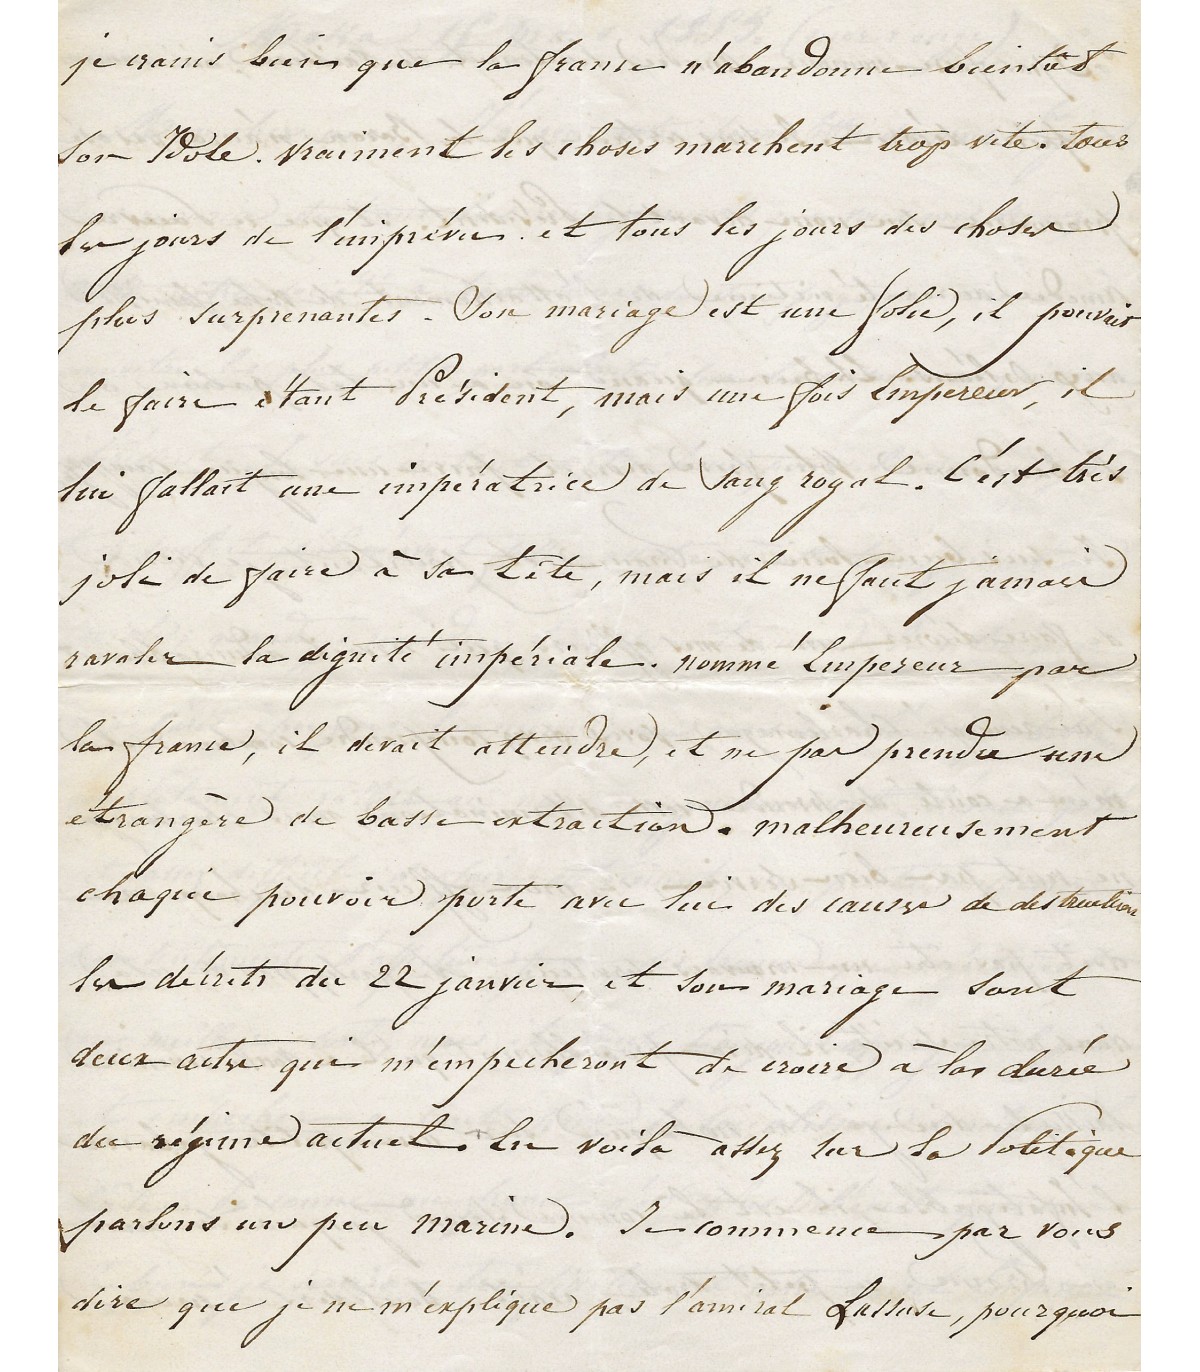 je crains bien que la france n'abandonne bientôt
son Idole. vraiment les choses marchent trop vite. tous
les jours de l'imprévu. et tous les jours des choses
plus surprenantes. Son mariage est une folie, il pouvait
le faire étant Président, mais une fois Empereur, il
lui fallait une impératrice de sang royal. C'est très
joli de faire à sa tête, mais il ne faut jamais
ravaler la dignité impériale. nommé Empereur par
la france, il devait attendre, et ne pas prendre une
etrangère de basse extraction. malheureusement
chaque pouvoir porte avec lui des causes de destruction
les décrets du 22 janvier, et son mariage sont
deux actes qui m'empecheront de croire à la durée
du régime actuel. En voilà assez sur la Politique
parlons un peu marine. Je commence par vous
dire que je ne m'explique pas l'amiral Lassuse, pourquoi